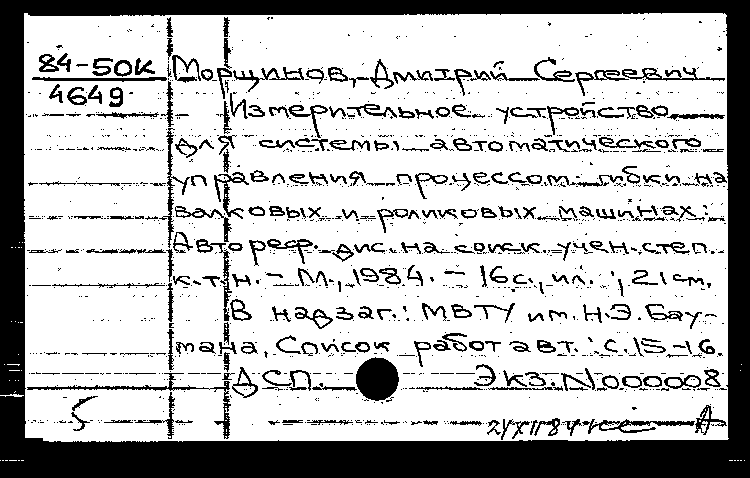 84-50К Морщинов, Дмитрий Сергеевич
4649
Измерительное устройство
для системы автоматического
управления процессом гибки на
валковых и роликовых машинах:
Автореф. дис. на соиск. учен. степ.
к.т.н. - М., 1984. - 16 с., ил.; 21 см.
В надзаг.: МВТУ им. Н.Э. Бау-
мана, Список работ авт.: с. 15-16.
ДСП. Экз. N 000008
5
24 XII 84 А